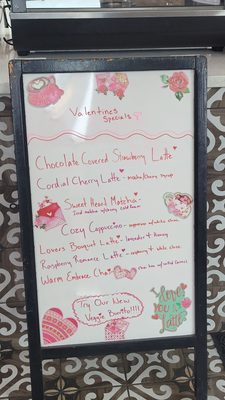 Valentines
Specials
Chocolate Covered Strawberry Latte
Cordial Cherry Latte - mocha/cherry syrup
Sweet Heart Matcha -
Iced matcha w/cherry cold foam
Cozy Cappuccino - cappuccino w/white choco
Lovers Bouquet Latte - lavender + honey
Raspberry Romance Latte - raspberry + white choco
Warm Embrace Chai
Try Our New
Veggie Burrito!!!!
love
you a
latte